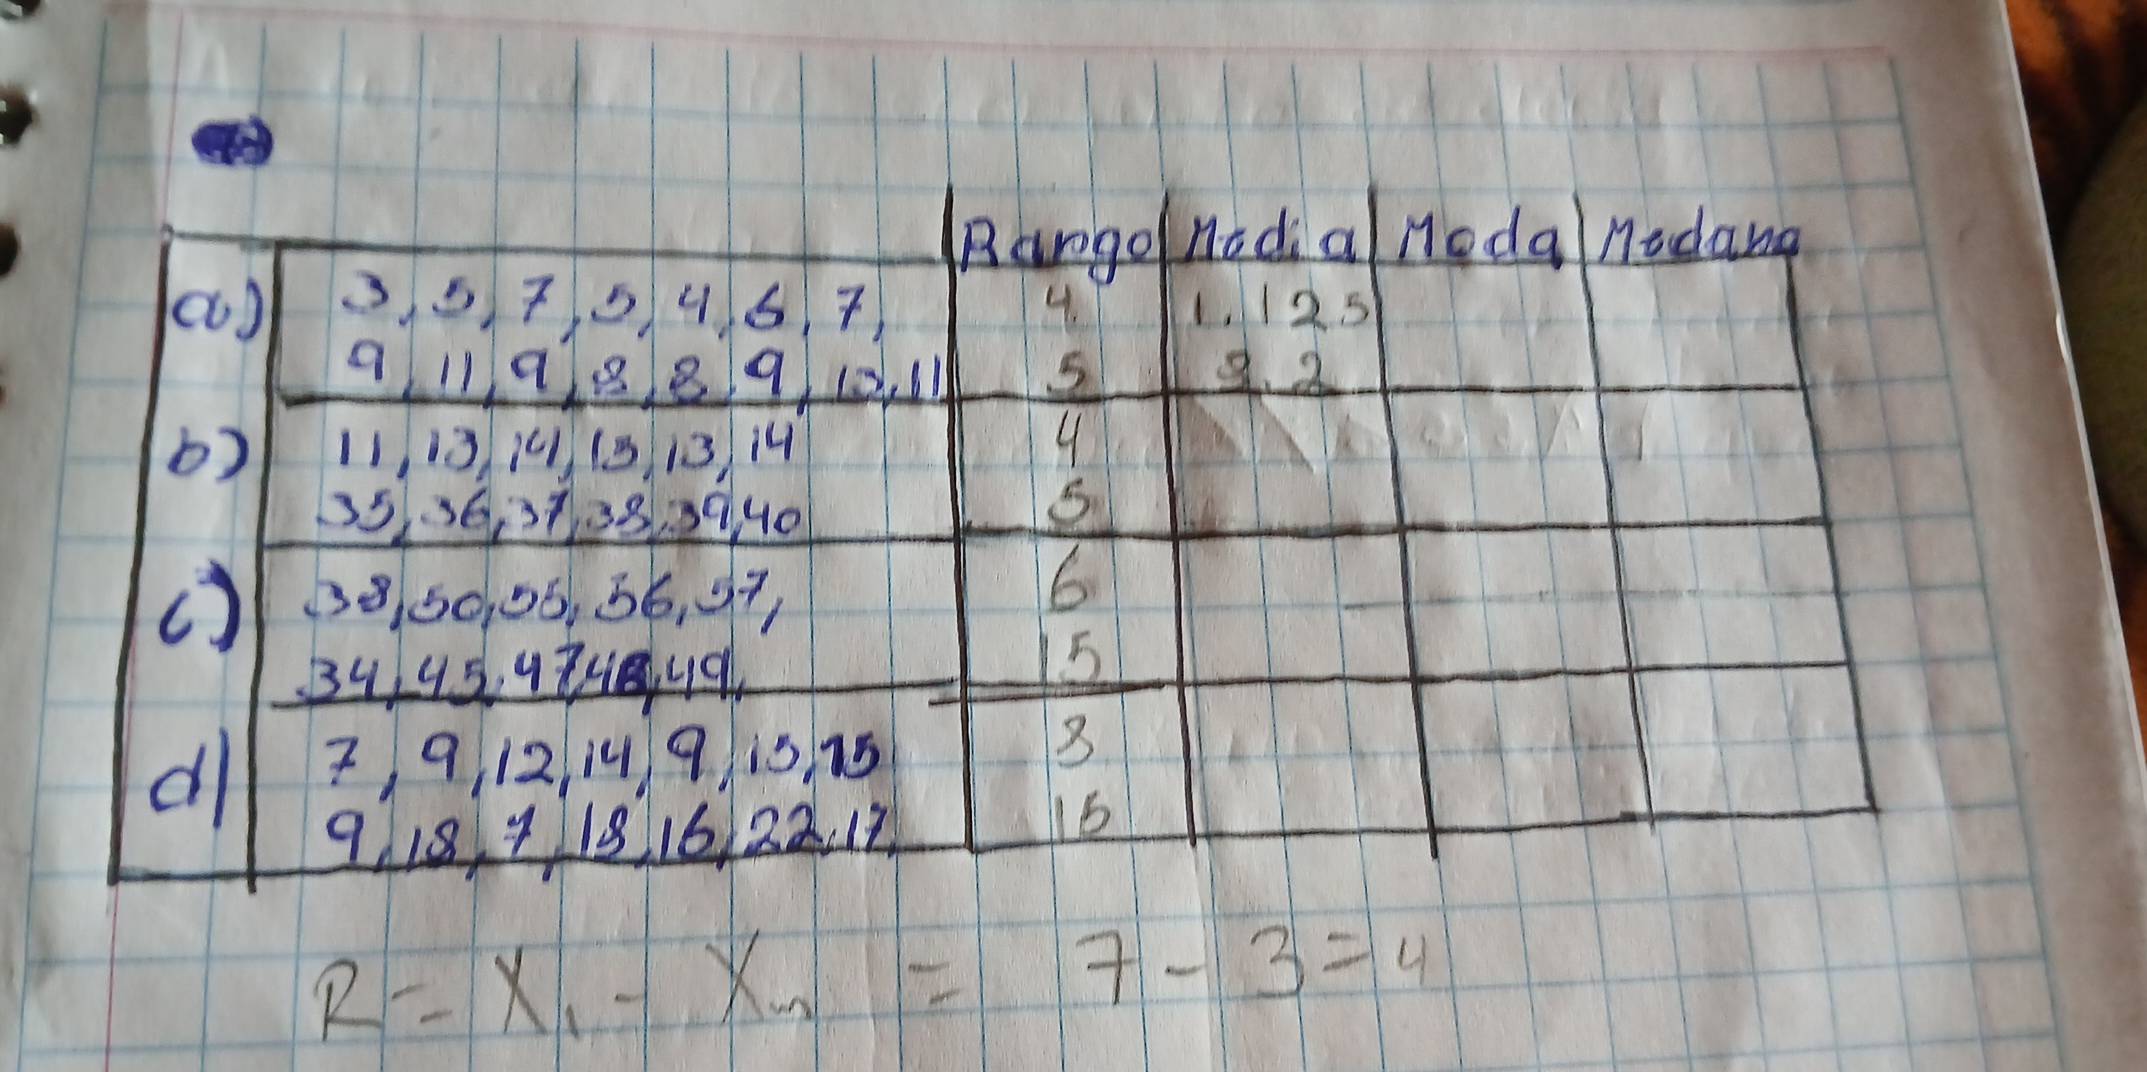 Rango Media Moda Medana
a) 3, 5, 7, 5, 4, 6, 7, 4. 1.125
9, 11, 9, 8, 8, 9, 10, 11 5 9.2
b) 11, 13, 14, 15, 13, 14 4
35, 36, 37, 38, 39, 40 5
c) 38, 50, 55, 56, 57, 6
34, 45, 47, 48, 49, 15
d) 7, 9, 12, 14, 9, 15, 15 8
9, 18, 7, 18, 16, 22, 17, 15
R = X₁ - Xₘ = 7 - 3 = 4